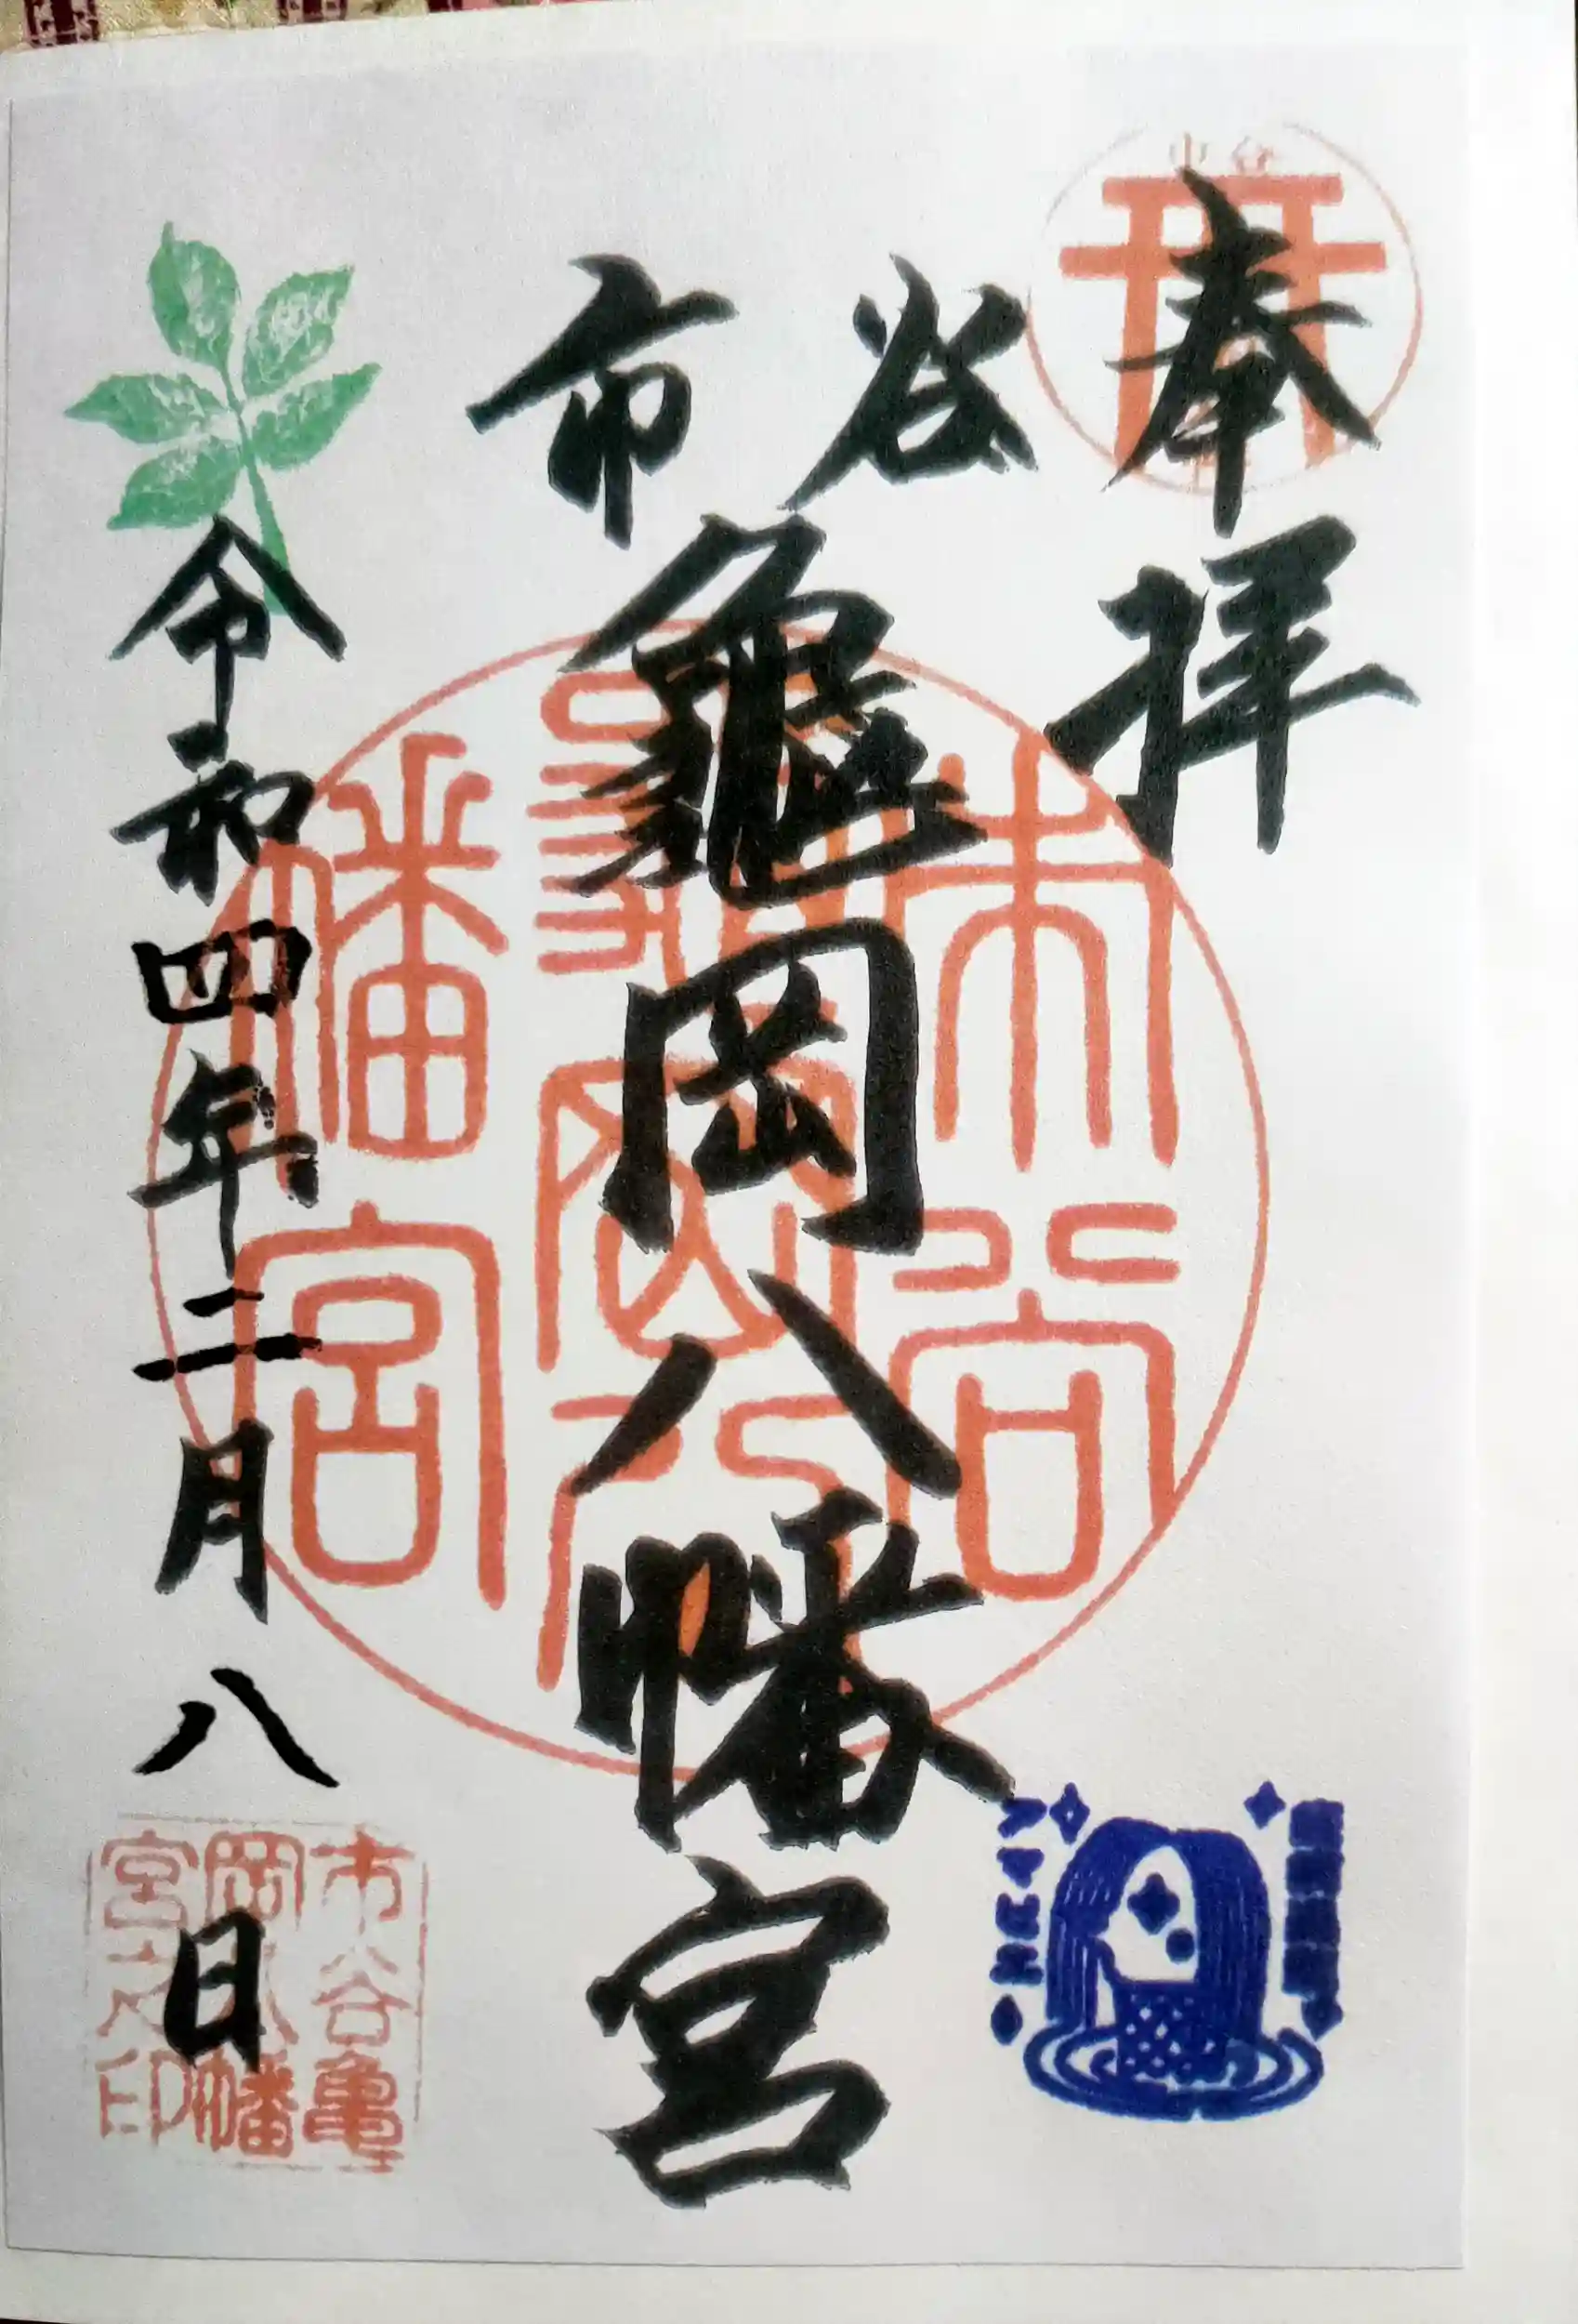 奉拝
市谷
亀岡八幡宮
令和四年二月八日
市谷
亀岡八
幡宮
市谷亀
岡八幡
宮之印